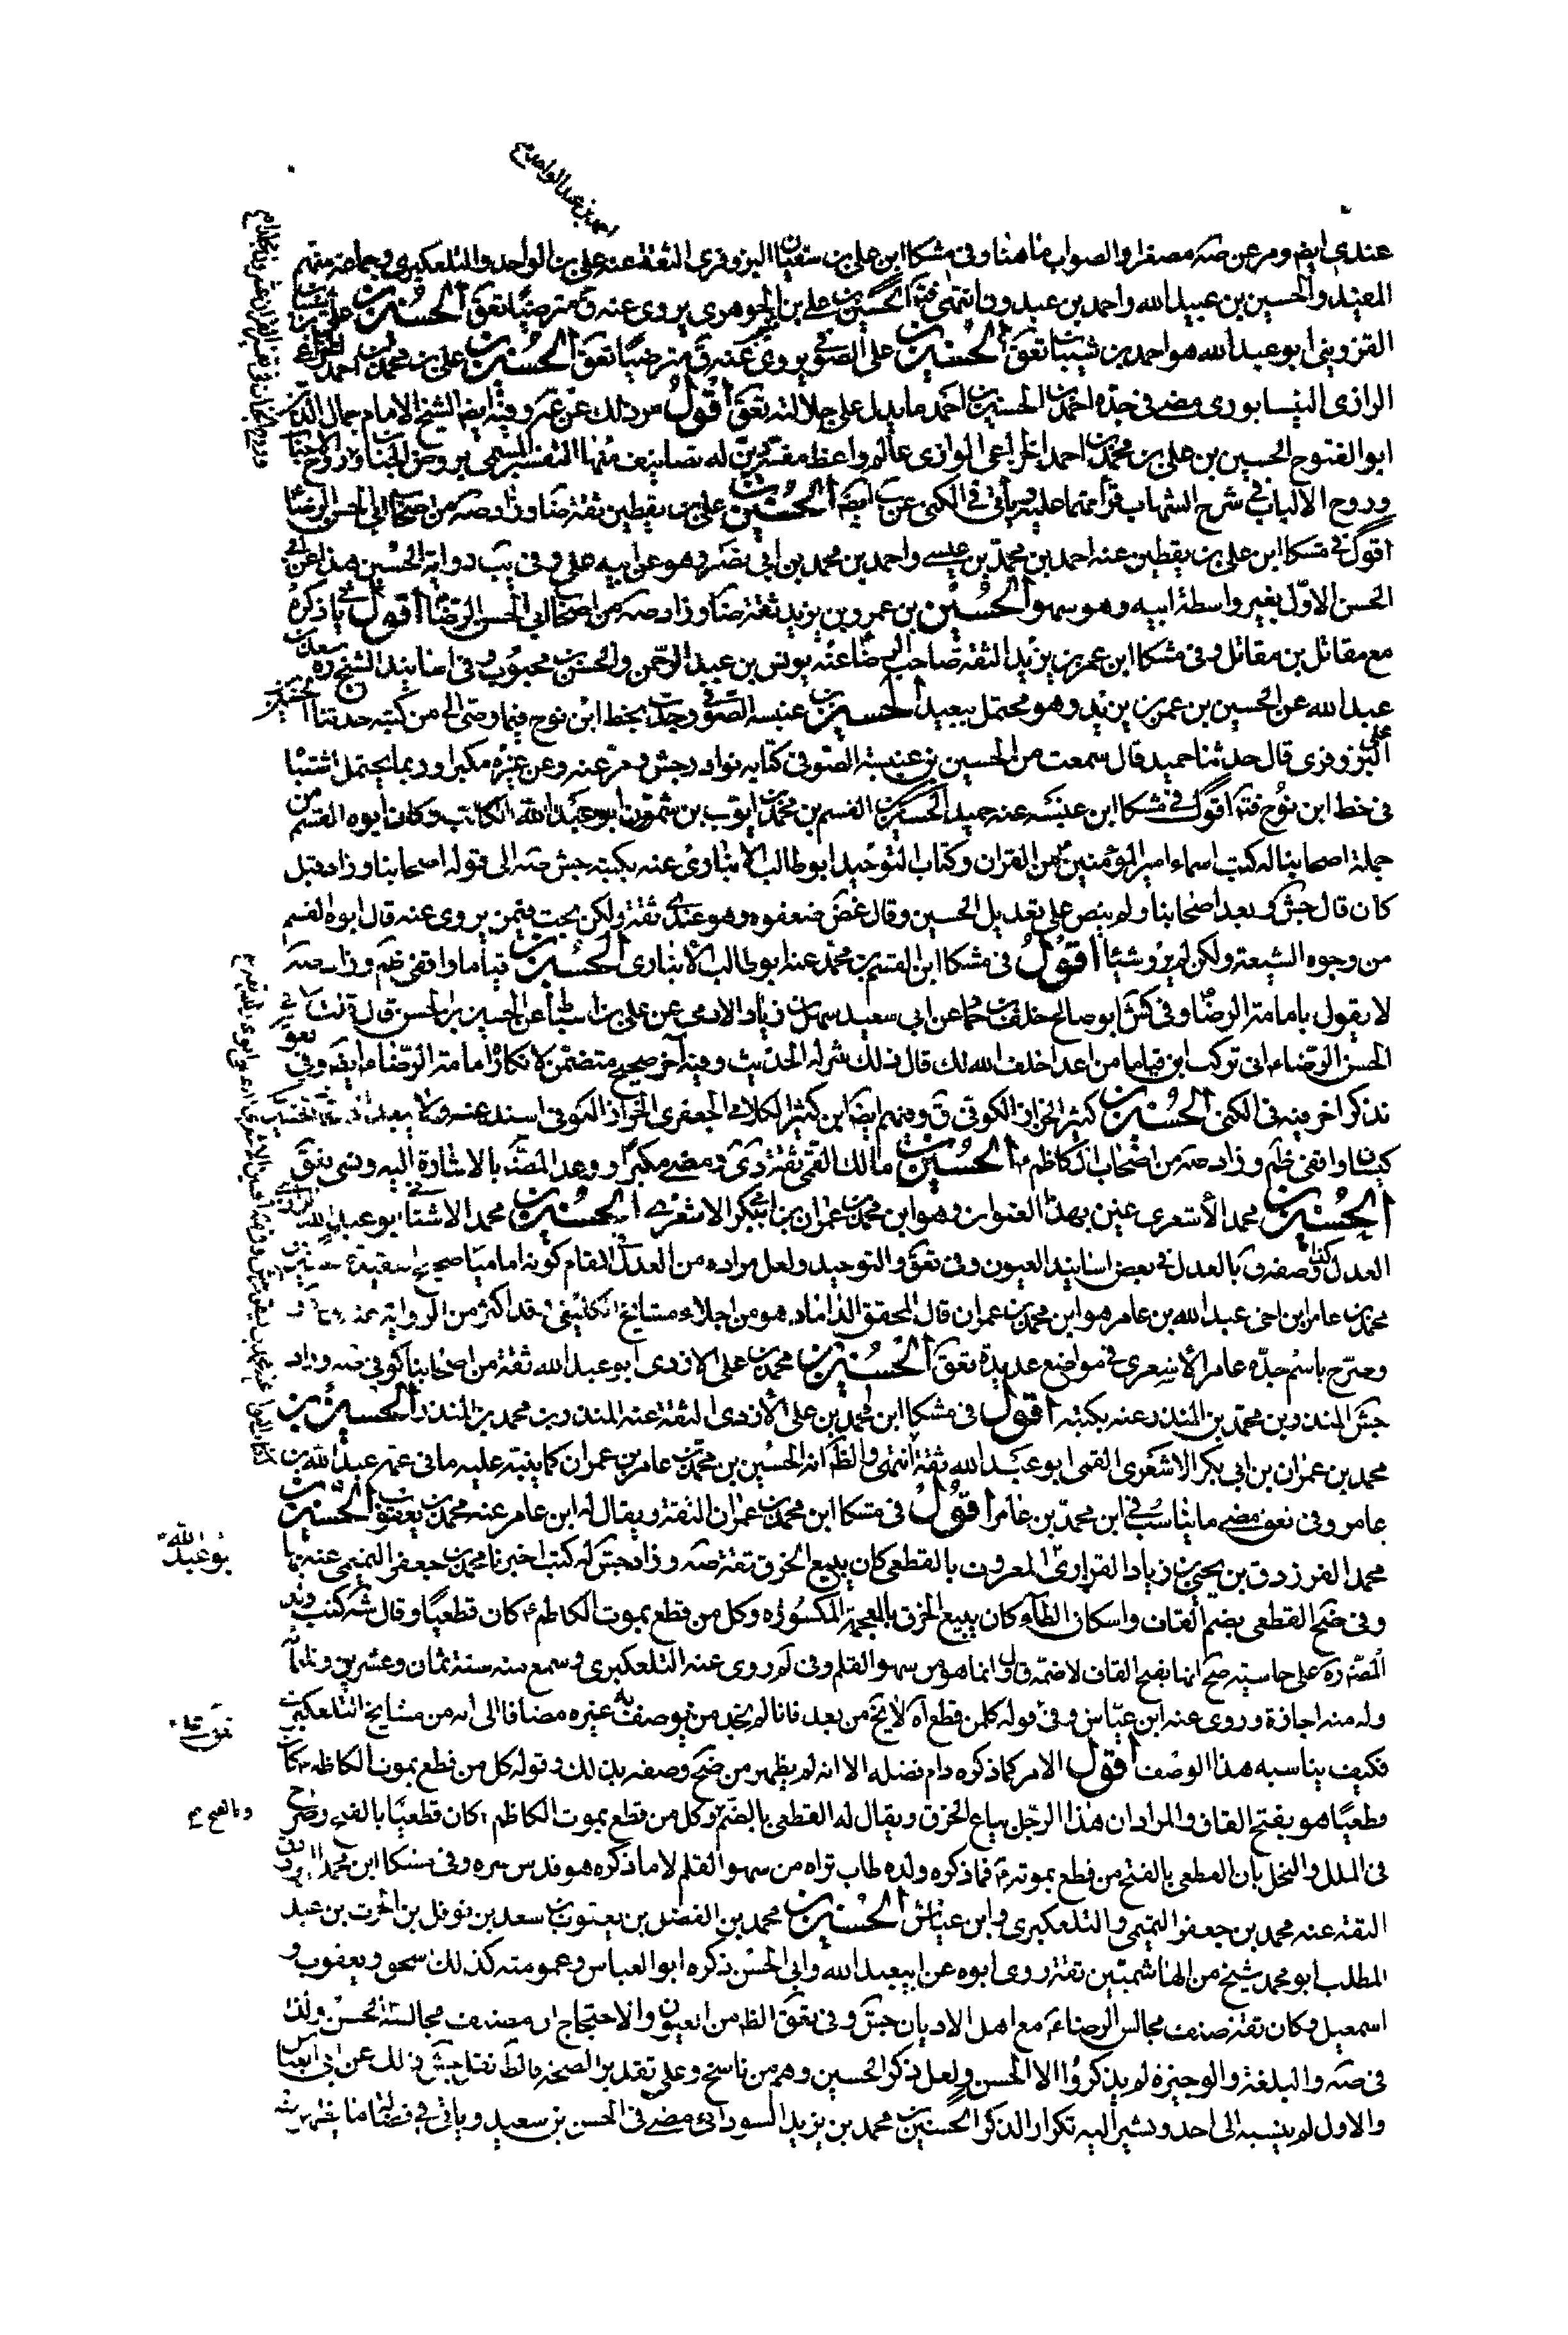 عندى ايض ومر عن صه مصغرا والصواب ما هنا وفى مشكا ابن على بن سفيان البزوفرى الثقة عنه على بن الواحد والتلعكبرى وجماعة منهم
المفيد والحسين بن عبيد الله واحمد بن عبدون انتهى فتد الحسين بن على بن الجوهرى يروى عنه ق مترضيا تعق الحسين بن على بن
القزوينى ابو عبد الله هو احمد بن شيبان تعق الحسين بن على الصوفى يروى عنه ق مترضيا تعق الحسين بن على بن محمد بن احمد الخزاعى
الرازى النيسابورى مضى فى جده احمد بن الحسين بن احمد ما يدل على جلالته تعق اقول مر ذلك عن غير وفيه ايض الشيخ الامام جمال الدين
ابو الفتوح الحسين بن على بن محمد بن احمد الخزاعى الرازى عالم واعظ مفسر دين له تصانيف منها التفسير المسمى بروض الجنان وروح الجنان
وروح الالباب فى شرح الشهاب قرأتهما عليه وياتى فى الكنى عن ب ايضا الحسين بن على بن يقطين ثقة ضا وزاد صه من اصحاب ابى الحسن الرضا
اقول فى مشكا ابن على بن يقطين عنه احمد بن محمد بن عيسى واحمد بن محمد بن ابى نصر وهو عن ابيه على وفى يب رواية الحسين هذا عن ابى
الحسن الاول بغير واسطة ابيه وهو سهو الحسين بن عمر بن يزيد ثقة ضا وزاد صه من اصحاب ابى الحسن الرضا اقول ياتى ذكره
مع مقاتل بن مقاتل وفى مشكا ابن عمر بن يزيد الثقة صاحب الرضا عنه يونس بن عبد الرحمن والحسن بن محبوب وفى اسانيد الشيخ ره سعد بن
عبد الله عن الحسين بن عمر بن يزيد وهو محتمل ببعيد الحسين بن عنبسة الصوفى وجدت بخط ابن نوح فيما وصى الى من كتبه حدثنا الحسين بن
على البزوفرى قال حدثنا حميد قال سمعت من الحسين بن عنبسة الصوفى كتابه نوادر جش ومر عنه وعن غيره مكبرا وربما يحتمل اشتباها
فى خط ابن نوح فتد اقول فى مشكا ابن عنبسه عنه حميد الحسين بن القسم بن محمد بن ايوب بن شمون ابو عبد الله الكاتب وكان ابوه القسم من
جملة اصحابنا له كتب اسماء امير المؤمنين من القران وكتاب التوحيد ابو طالب الانبارى عنه بكتبه جش صه الى قوله اصحابنا وزاد قبل
كان قال جش كه بعد اصحابنا ولم ينص على تعديل الحسين وقال غض ضعفوه وهو عندى ثقة ولكن بحث فيمن يروى عنه قال ابوه القسم
من وجوه الشيعة ولكن لم يرو شيئا اقول فى مشكا ابن القسم بن محمد عنه ابو طالب الانبارى الحسين بن قياما واقفى ظم وزاد صه
لا يقول بامامة الرضا وفى كش ابو صالح خلف بن حماد عن ابى سعيد سهل بن زياد الادمى عن على بن اسباط عن الحسين بن الحسن قال قلت لابى
الحسن الرضاء انى تركت ابن قياما من اعدا خلق الله لك قال ذلك شر له الحديث وفيه آخر صحيح متضمن لانكاره امامة الرضاء ايض وفى تعق
نذكر اخر فيه فى الكنى الحسين بن كثير الخزاز الكوفى ق ومنهم ايضا ابن كثير الكلابى الجعفرى الخزاز الكوفى اسند عنه الحسين بن
كيسان واقفى ظم وزاد صه من اصحاب الكاظم ع الحسين بن مالك القمى ثقة دى ومضى مكبرا ووعد المصنه بالاشارة اليه ونسى تعق
الحسين بن محمد الاشعرى عين بهذا العنوان وهو ابن محمد بن عمران بن ابى بكر الاشعرى الحسين بن محمد الاشنانى ابو عبد الله الرازى
العدل كذا وصفه ق بالعدل فى بعض اسانيد العيون وفى تعق والتوحيد ولعل مراده من العدل فى المقام كونه اماميا صحيح العقيدة الحسين بن
محمد بن عامر ابن اخى عبد الله بن عامر هو ابن محمد بن عمران قال المحقق الداماد هو من اجلاء مشايخ الكلينى قد اكثر من الرواية عنه
وصرح باسم جده عامر الاشعرى فى مواضع عديدة تعق الحسين بن محمد بن على الازدى ابو عبد الله ثقة من اصحابنا كوفى صه وزاد
جش المنذر بن محمد بن المنذر عنه بكتبه اقول فى مشكا ابن محمد بن على الازدى الثقة عنه المنذر بن محمد بن المنذر الحسين بن
محمد بن عمران بن ابى بكر الاشعرى القمى ابو عبد الله ثقة انتهى والظ انه الحسين بن محمد بن عامر بن عمران كما ينبه عليه ما فى عمه عبد الله بن
عامر وفى تعق مضى ما يناسب فى ابن محمد بن عامر اقول فى مشكا ابن محمد بن عمران الثقة ويقال له ابن عامر عنه محمد بن يعقوب الحسين بن
محمد الفرزدق بن يحيى بن زياد الفزارى المعروف بالقطعى كان يبيع الخرق ثقة صه وزاد جش له كتب اخبرنا محمد بن جعفر التميمى عنه بها
وفى ضح القطعى بضم القاف واسكان الطاء كان يبيع الخرق بالمعجمة المكسوره وكل من قطع بموت الكاظم ع كان قطعيا وقال شه كتب ولد
المصنه ره على حاشيته ضح انها بفتح القاف لا ضمه قال وانما هو من سهو القلم وفى لم روى عنه التلعكبرى وسمع منه سنة ثمان وعشرين وثلثمائة
وله منه اجازة وروى عنه ابن عياش وفى قوله كل من قطع اه لا يخ من بعد فانا لم نجد من يوصف به غيره مضافا الى انه من مشايخ التلعكبرى
فكيف يناسبه هذا الوصف اقول الامر كما ذكره دام فضله الا انه لم يظهر من ضح وصفه بذلك وقوله كل من قطع بموت الكاظم ع كان
قطعيا هو بفتح القاف والمراد ان هذا الرجل بياع الخرق ويقال له القطعى بالضم وكل من قطع بموت الكاظم ع كان قطعيا بالفتح وصرح
فى الملل والنحل بان القطعى بالفتح من قطع بموته ع فما ذكره ولده طاب ثراه من سهو القلم لا ما ذكره هو قدس سره وفى مشكا ابن محمد الفرزدق
الثقة عنه محمد بن جعفر التميمى والتلعكبرى وابن عياش الحسين بن محمد بن الفضل بن يعقوب بن سعد بن نوفل بن الحرث بن عبد
المطلب ابو محمد شيخ من الهاشميين ثقة روى ابوه عن ابيعبد الله وابى الحسن ذكره ابو العباس وعمومته كذلك اسحق ويعقوب و
اسمعيل وكان ثقة صنف مجالس الرضاء مع اهل الاديان جش وفى تعق الظ من العيون والاحتجاج ان مصنف مجالسه الحسن ولذا
فى صه والبلغة والوجيزة لم يذكروا الا الحسن ولعل ذكر الحسين وهم من ناسخ وعلى تقدير الصحة فالظ نقل جش ذلك عن ابى العباس
والاول لم ينسبه الى احد ويشير اليه تكرار الذكر الحسين بن محمد بن يزيد السورائى مضى فى الحسن بن سعيد وياتى فى فضالة ما
ابو عبد الله
وبالفتح